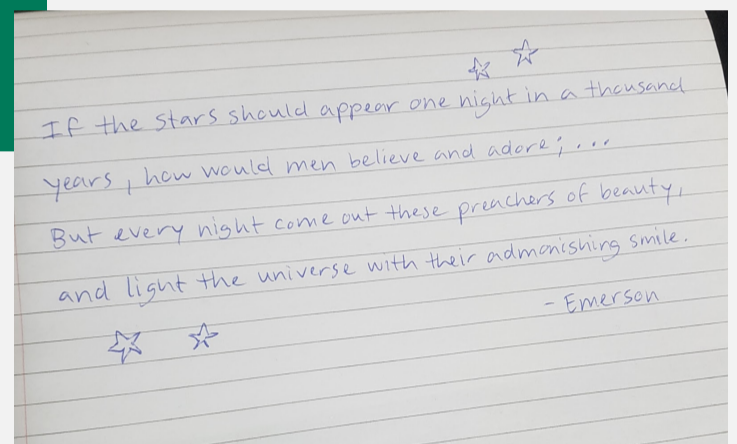 If the stars should appear one night in a thousand
years, how would men believe and adore; ...
But every night come out these preachers of beauty,
and light the universe with their admonishing smile.
- Emerson